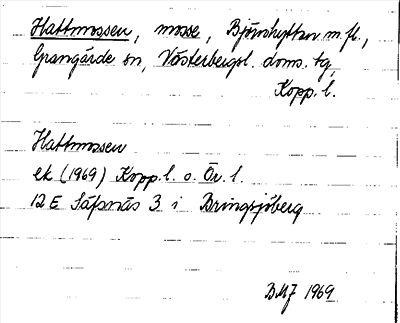 Hattmossen, mosse, Björnhyttan m.fl.,
Grangärde sn, Västerbergsl. doms. tg,
Kopp. l.
Hattmossen
ek (1969) Kopp. l. o. Ör. l.
12 E Säfsnäs 3 i Bringsjöberg
BMJ 1969